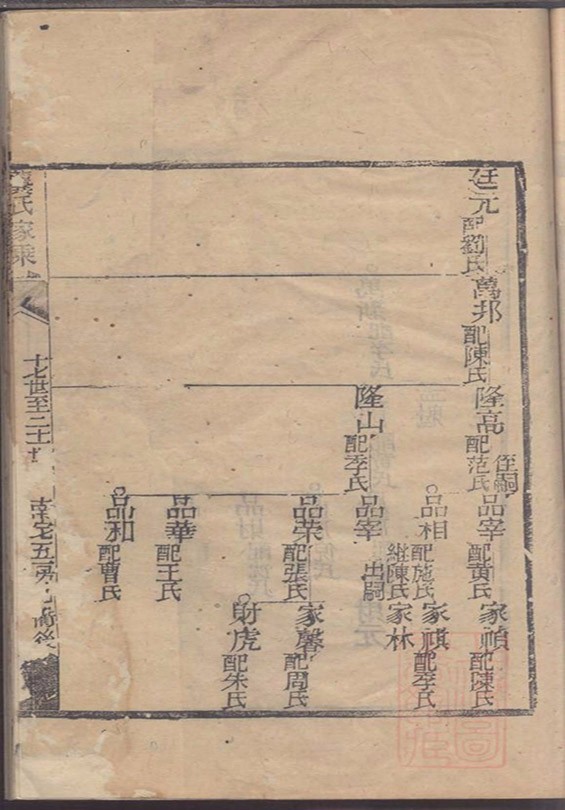 廷元 配劉氏
萬邦 配陳氏
隆高 配范氏
侄嗣
品宰 配黃氏
家禎 配陳氏
品相 配施氏 繼陳氏
家祺 配李氏
家林
隆山 配季氏
品宰 出嗣
品荣 配張氏
家馨 配周氏
財虎 配朱氏
品華 配王氏
品和 配曹氏
氏家乘
十七世至二十
五房
後
圖